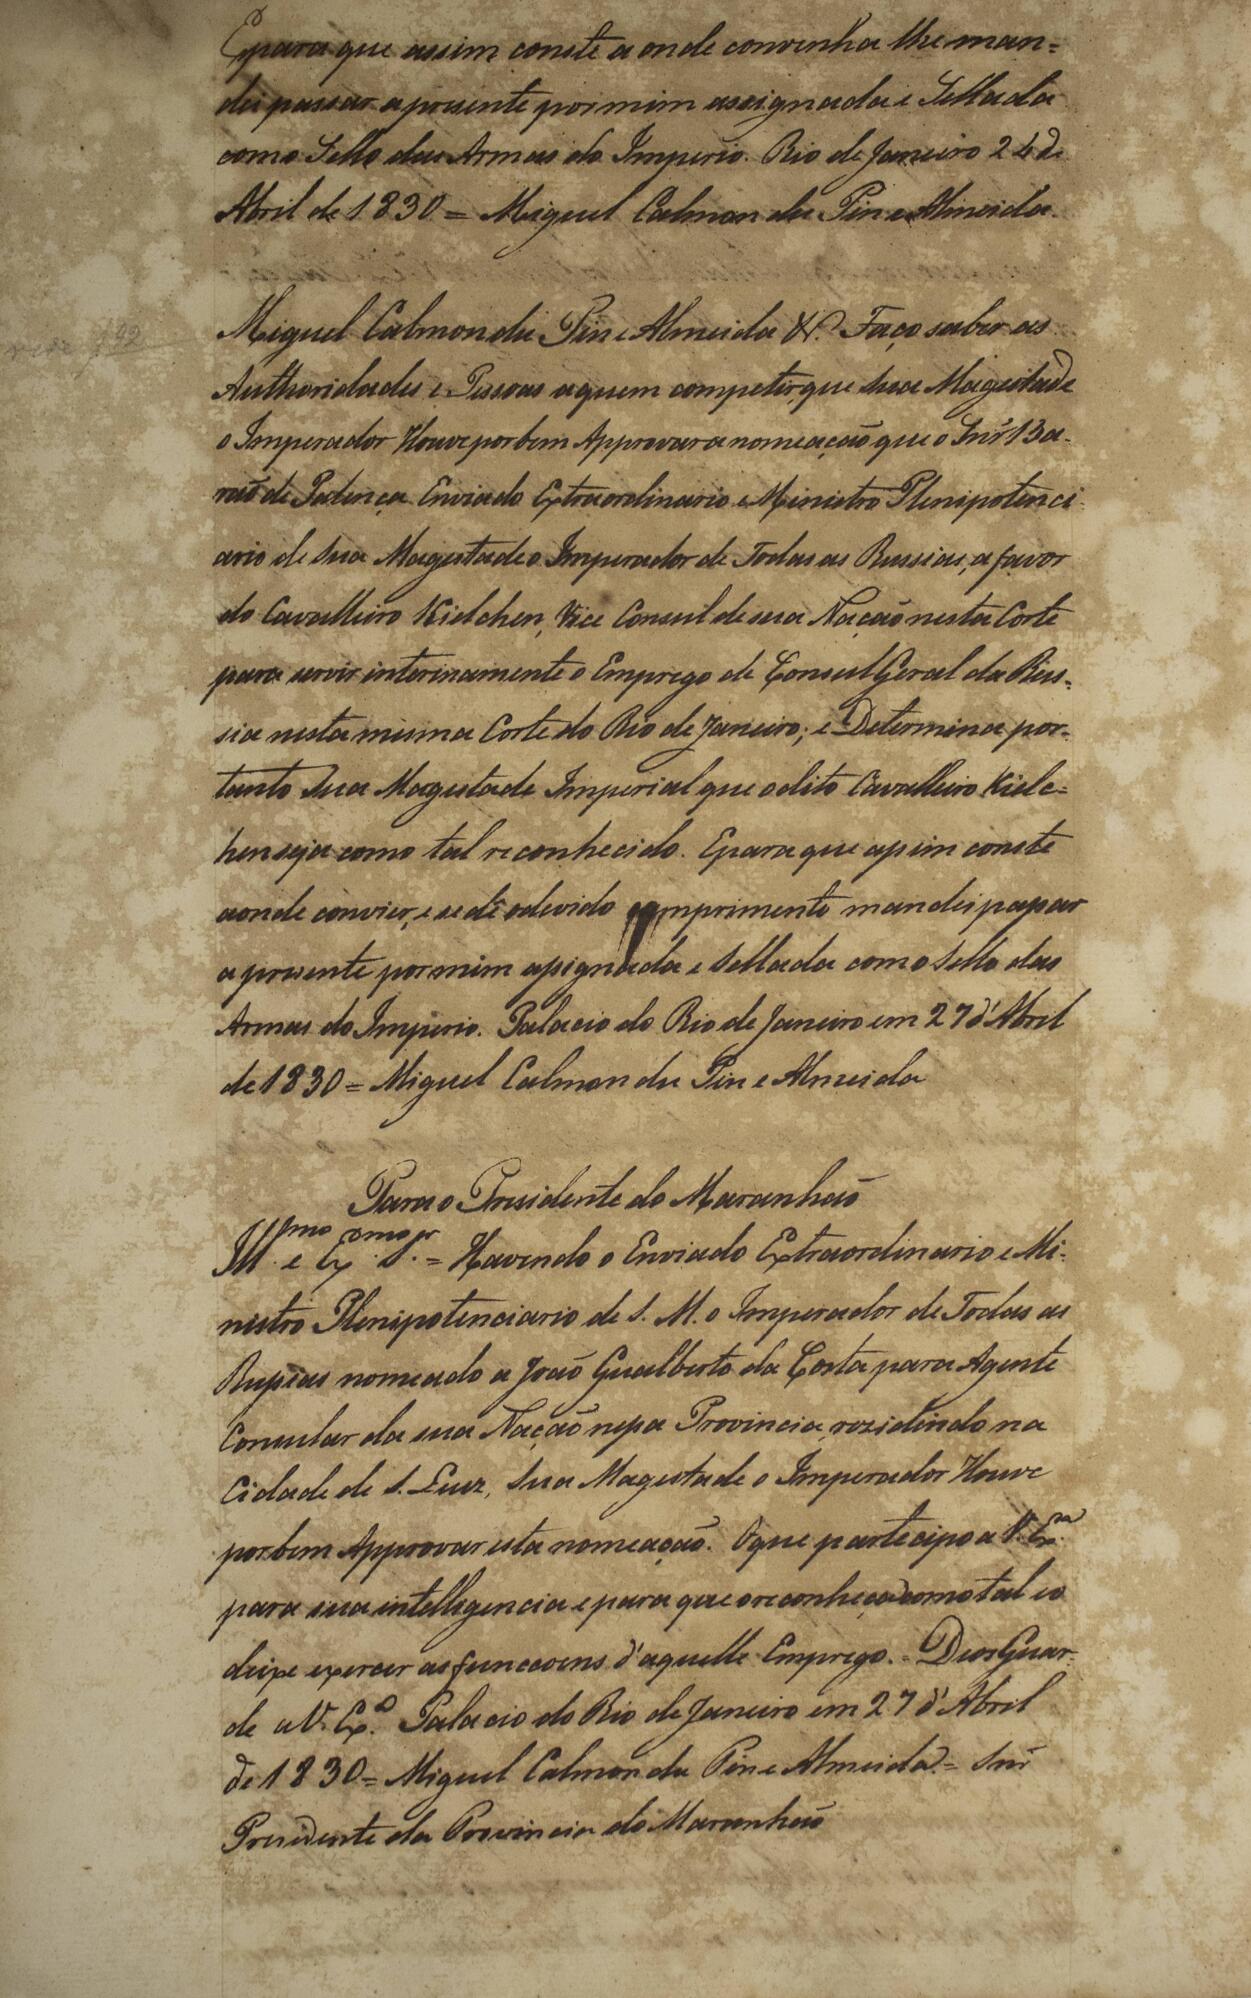 E para que assim conste a onde convenha lhe man=
dei passar a presente por mim assignada e Sellada
com o Sello das Armas do Imperio. Rio de Janeiro 24 de
Abril de 1830 = Miguel Calmon du Pin e Almeida.
Miguel Calmon du Pin e Almeida &ª. Faço saber as
Authoridades e Pessoas a quem competir, que Sua Magestade
o Imperador Houve por bem Approvar a nomeação que o Snr Ba-
rão de Palença Enviado Extraordinario e Ministro Plenipotenci
ario de Sua Magestade o Imperador de Todas as Russias, a favor
do Cavalleiro Kielchen, Vice Consul de sua Nação nesta Corte
para servir interinamente o Emprego de Consul Geral da Rus=
sia nesta mesma Corte do Rio de Janeiro; e Determina por-
tanto Sua Magestade Imperial que o dito Cavalleiro Kielc=
hen seja como tal reconhecido. E para que assim conste
aonde convier, e se dê o devido comprimento mandei passar
a presente por mim assignada e Sellada com o Sello das
Armas do Imperio. Palacio do Rio de Janeiro em 27 d'Abril
de 1830 = Miguel Calmon du Pin e Almeida
Para o Presidente do Maranhão
Illmo e Exmo Sr. = Havendo o Enviado Extraordinario e Mi-
nistro Plenipotenciario de S. M. o Imperador de Todas as
Russias nomeado a João Gualberto da Costa para Agente
Consular da sua Nação nessa Provincia, rezidindo na
Cidade de S. Luiz, Sua Magestade o Imperador Houve
por bem Approvar esta nomeação. O que partecipo a V. Exa.
para sua intelligencia e para que o reconheça como tal e o
deixe exercer as funccoens d'aquelle Emprego. - Deos Guar-
de a V. Exª. Palacio do Rio de Janeiro em 27 d'Abril
de 1830 = Miguel Calmon du Pin e Almeida = Snr
Presidente da Provincia do Maranhão